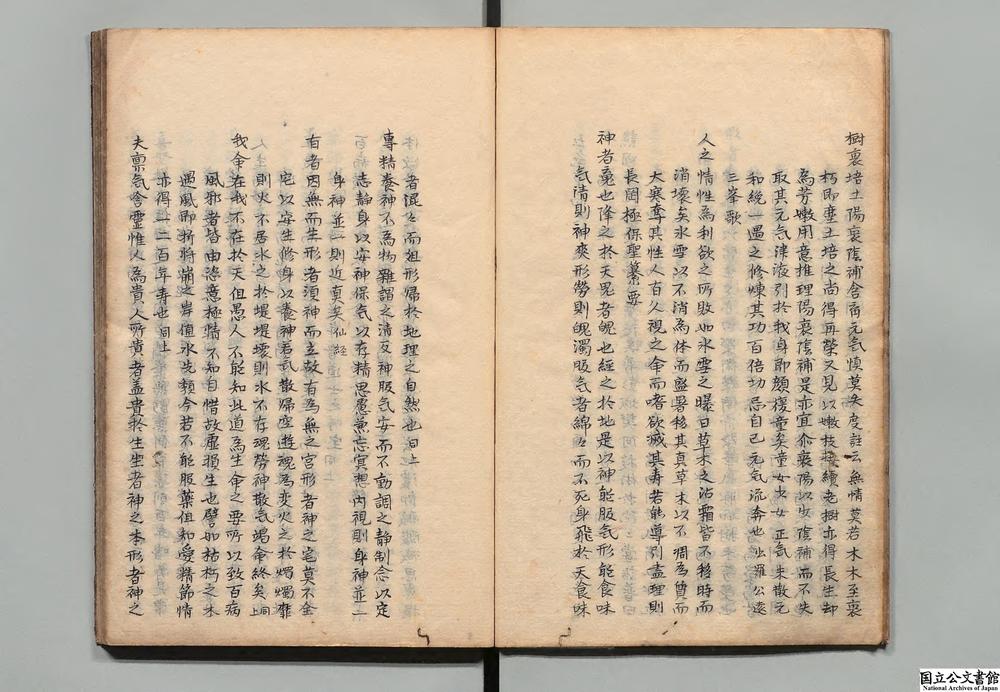 樹衰培土陽衰陰補含育元氣慎莫失度註云無情莫若木木至衰
朽即塵土培之尚得再榮又見以嫩枝接續老樹亦得長生却
為芳嫩用意推理陽衰陰補是亦宜介衰陽以少陰補而不失
取其元氣津液引於我身即顏復童矣童女少女正氣未散元
和統一遇之修煉其功百倍切忌自己元氣流奔也
三峯歌
人之情性為利欲之所敗如氷雪之曝日草木之沾霜皆不移時而
消壞矣氷雪以不消為体而盛暑移其真草木以不凋為質而
大寒奪其性人百久視之命而嗜欲滅其壽若能導引盡理則
長固極保聖纂要
神者䰟也降之於天鬼者魄也經之於地是以神能服氣形能食味
氣清則神爽形勞則魄濁服氣者綿々而不死身飛於天食味
者混々而殂形歸於地理之自然也同上
專精養神不為物雜謂之清反神服氣安而不動謂之静制念以定
志静身以安神保氣以存精思慮兼忘冥想内視則身神並一
身神並一則近真矣仙経
有者因無而生形者須神而立故有為無之宮形者神之宅莫不全
宅以安生修身以養神若氣散歸空遊魂為变火之於燭燭靡
則火不居水之於堤堤壞則水不存魂勞神散氣竭命終矣同上
我命在我不在於天但愚人不能知此道為生命之要所以致百病
風邪者皆由恣意極情不知自惜故虚損生也譬如枯朽之木
遇風即折將崩之岸值水先頽今若不能服藥但知愛精節情
亦得一二百年壽也同上
夫禀氣含靈惟人為貴人所貴者盖貴於生生者神之本形者神之
国立公文書館
National Archives of Japan